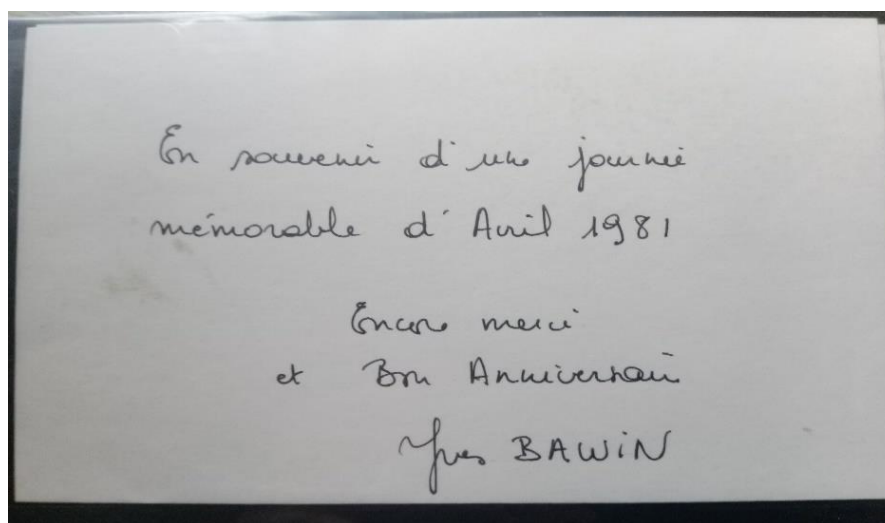 En souvenir d'une journée
mémorable d'Avril 1981
Encore merci
et Bon Anniversaire
Yves BAWiN